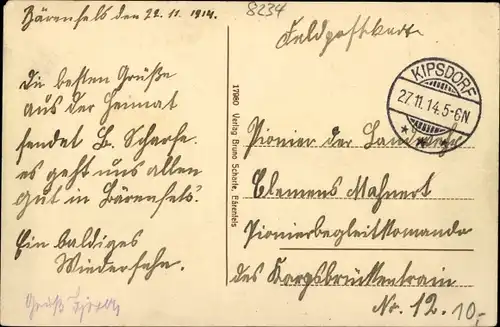 Bärenfels den 22.11.1914.
8234
Feldpostkarte
KIPSDORF
27.11.14.5-6N
Die besten Grüße
aus der Heimat
sendet B. Scharfe.
es geht uns allen
gut in Bärenfels.
Ein baldiges
Wiedersehn.
Gruß
17980 Verlag Bruno Scharfe, Bärenfels
Pionier der Landwehr
Clemens Mahnert
Pionierbegleitkomando
des
Nr. 12.
10,-